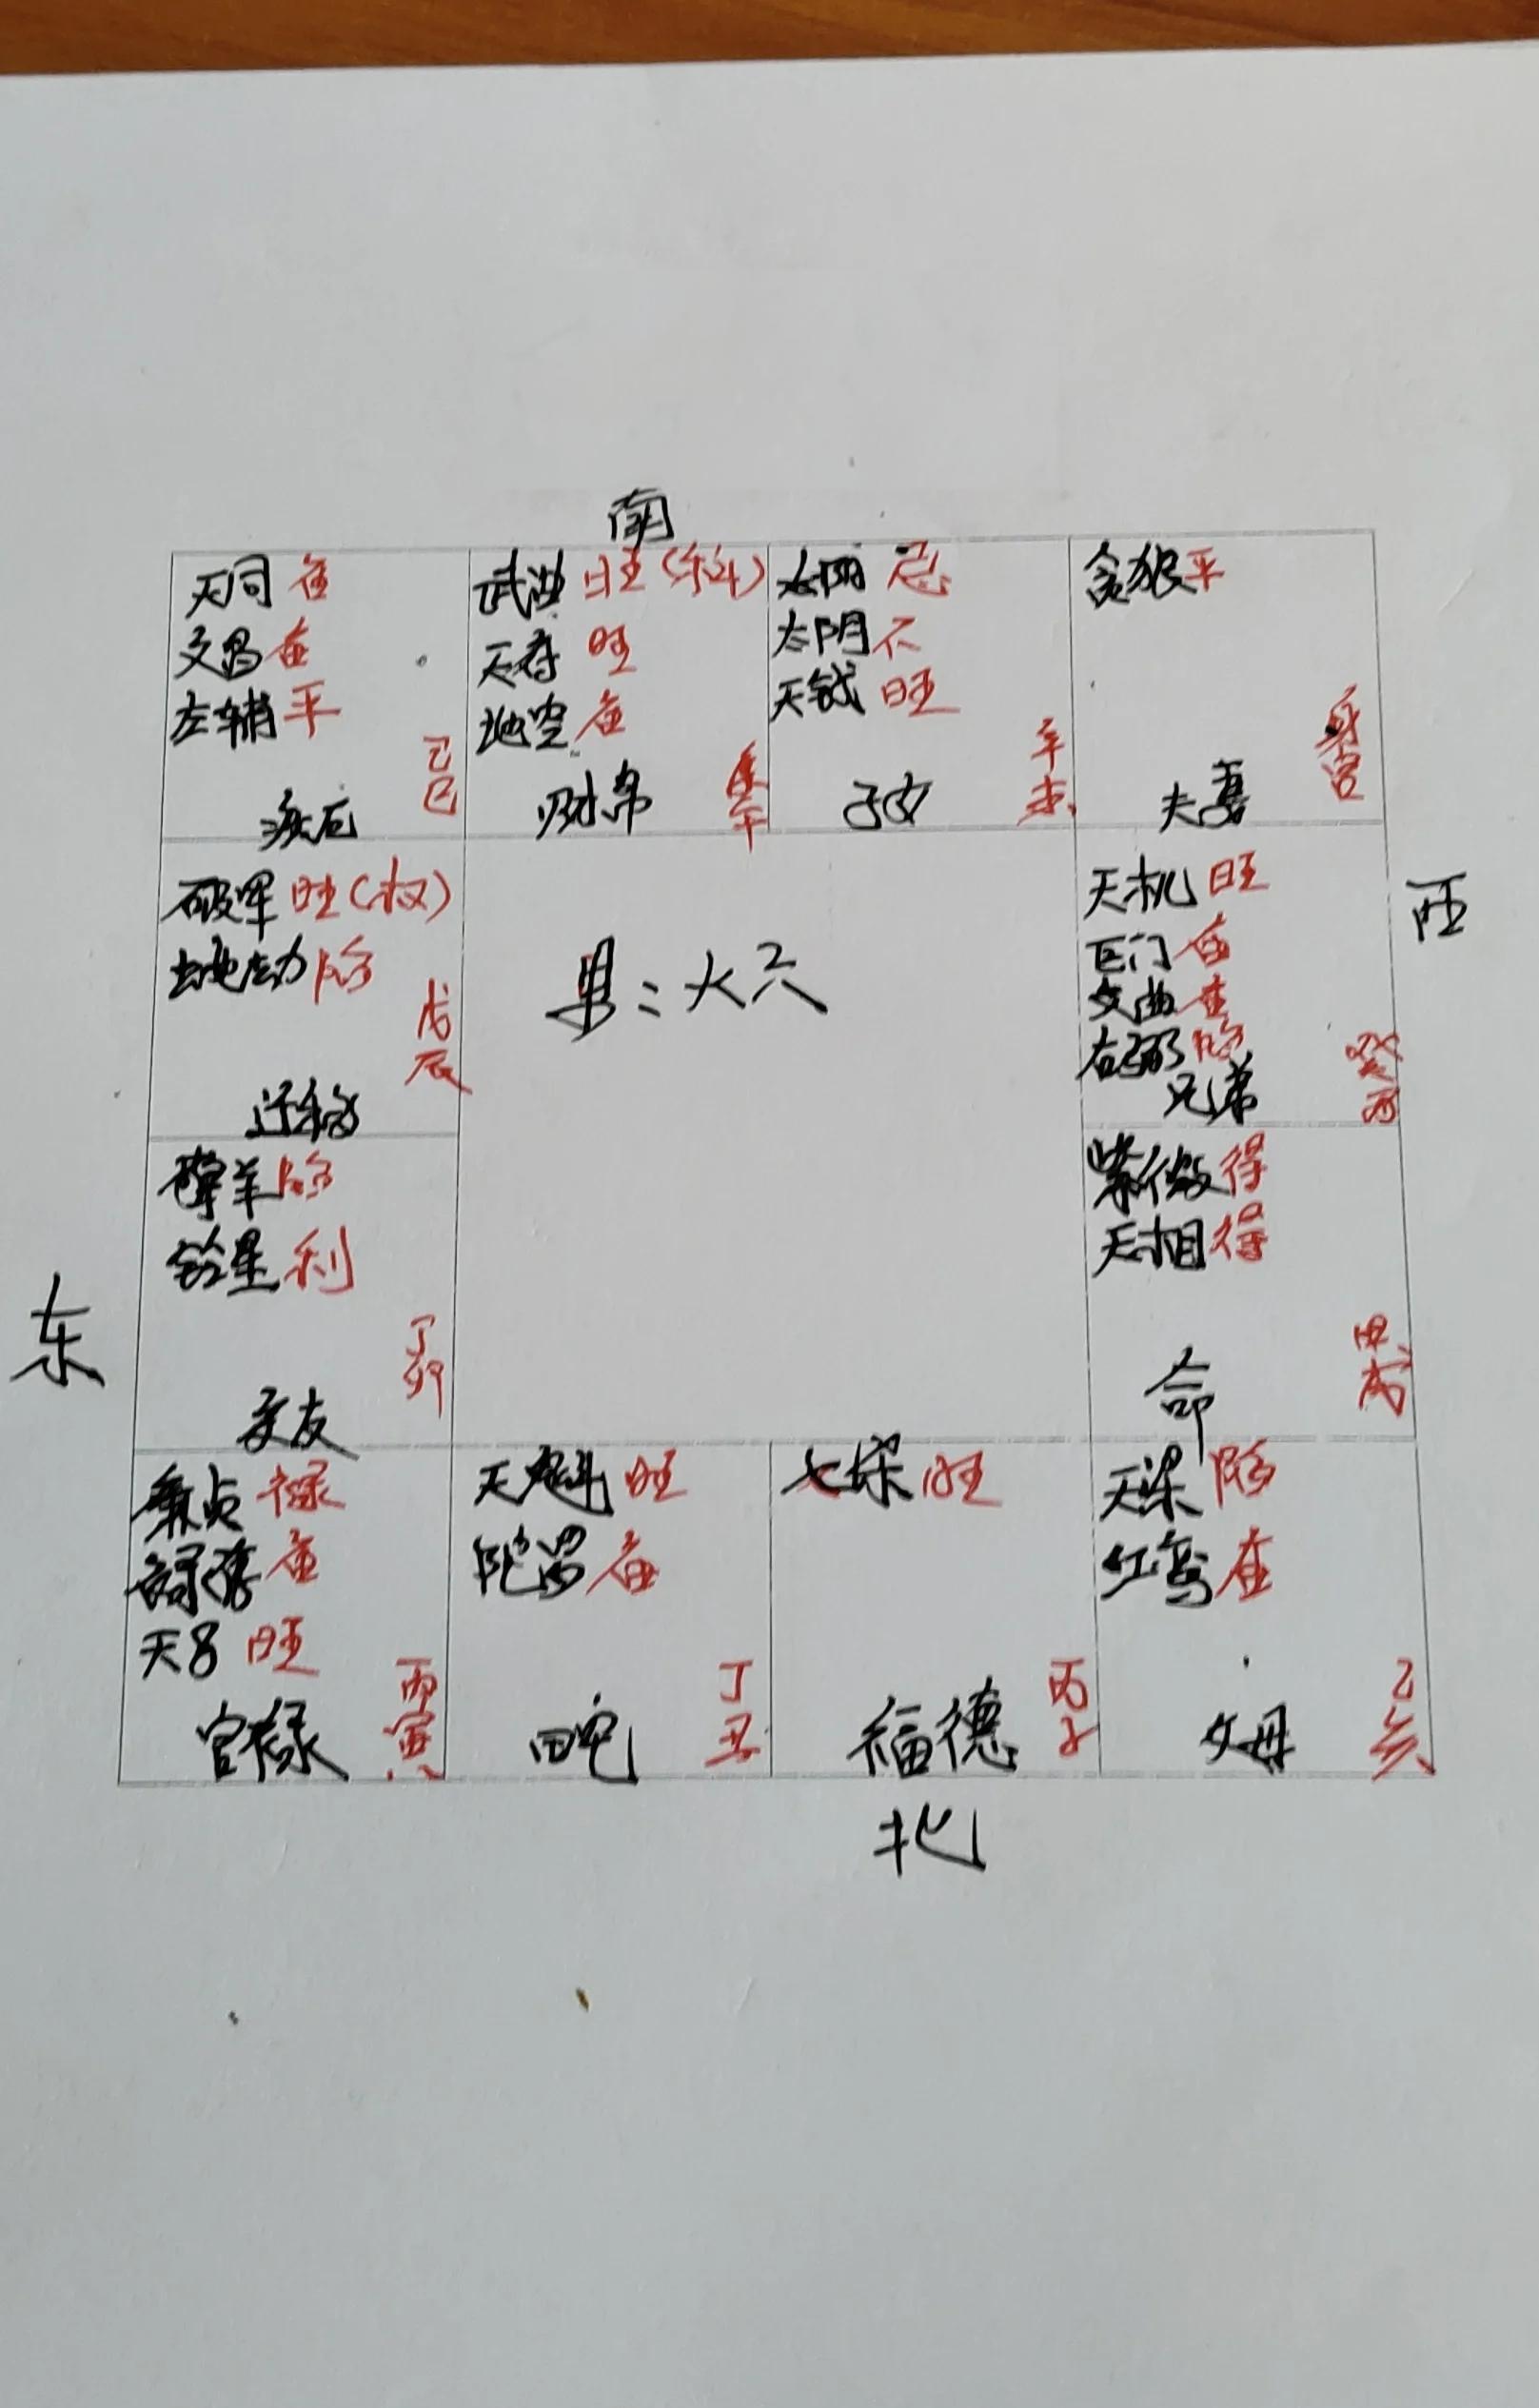 南
天同 庙
文昌 庙
左辅 平
己巳
疾厄
武曲 旺(科)
天府 旺
地空 庙
庚午
财帛
太阳 忌
太阴 不
天钺 旺
辛未
子女
贪狼 平
身宫
夫妻
破军 旺(权)
地劫 陷
戊辰
迁移
男:火六
天机 旺
巨门 庙
文曲 庙
右弼 陷
癸酉
兄弟
西
擎羊 陷
铃星 利
丁卯
交友
东
紫微 得
天相 得
甲戌
命
廉贞 禄
禄存 庙
天马 旺
丙寅
官禄
天魁 旺
陀罗 庙
丁丑
田宅
七杀 旺
丙子
福德
天梁 陷
红鸾 庙
乙亥
父母
北